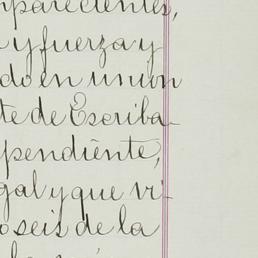 mparecientes,
y fuerza y
do en union
te de Escriba-
pendiente,
gal y que vi-
oseis de la